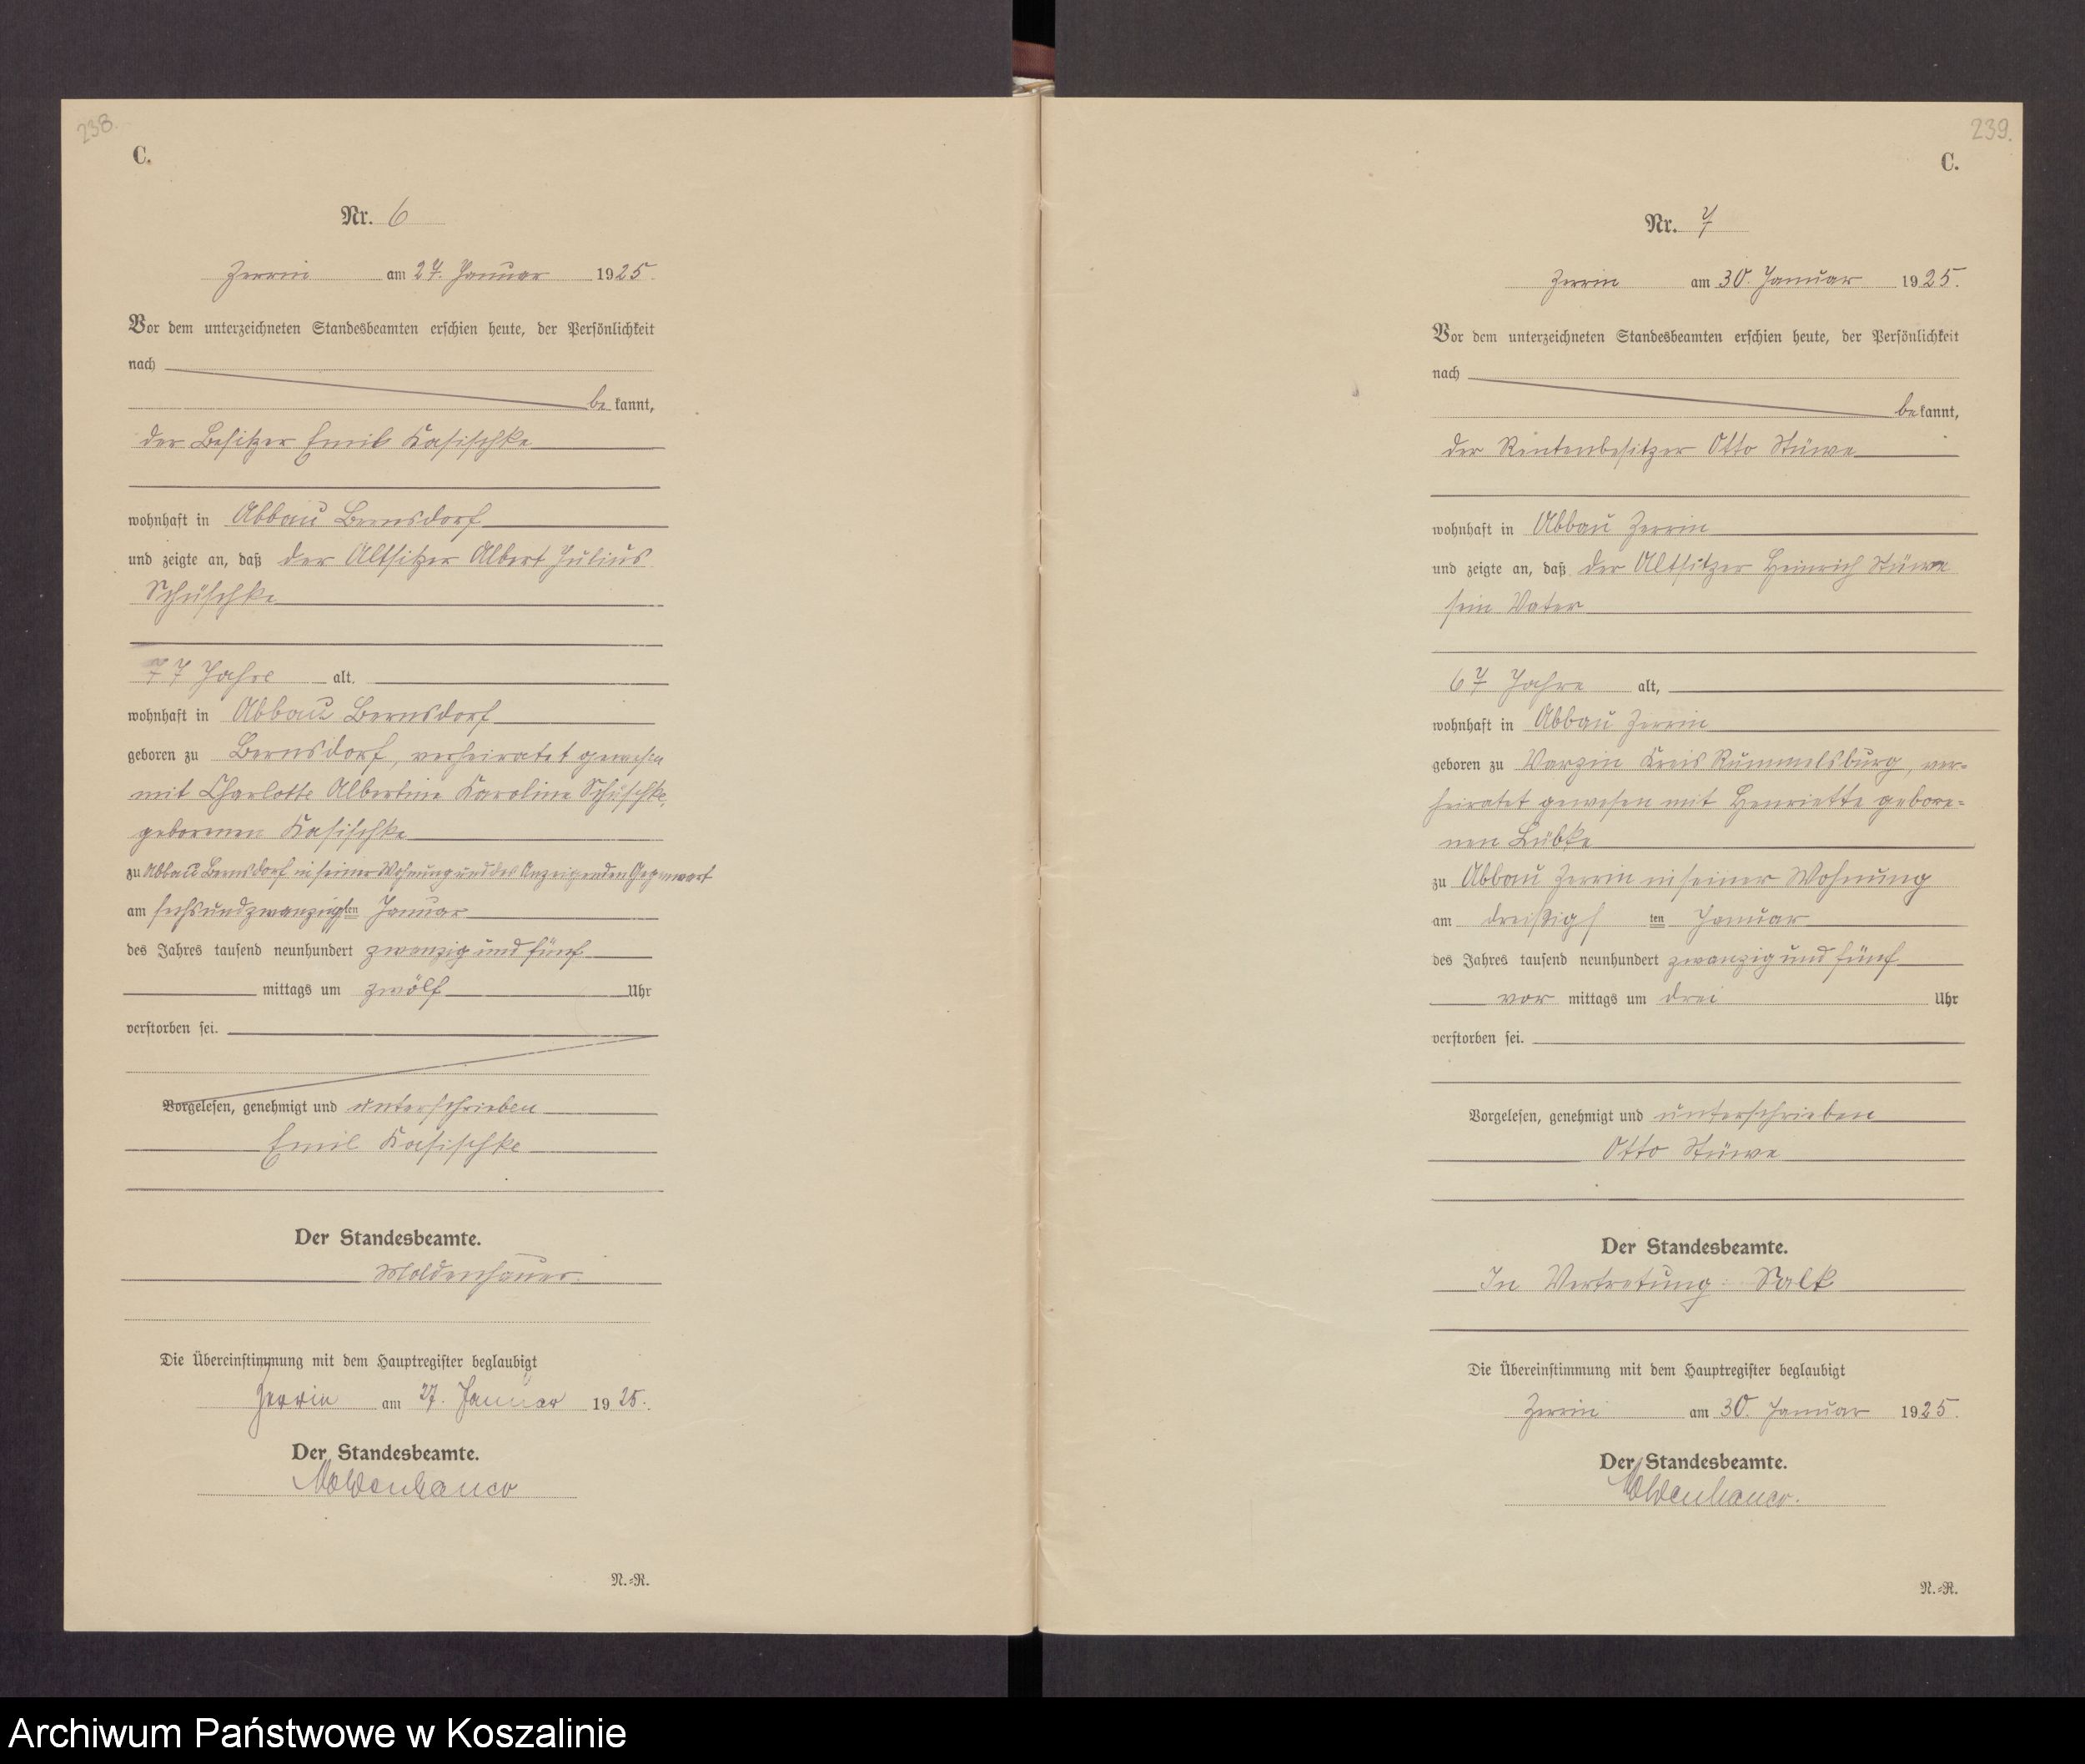 238.
C.
Nr. 6
Zerrin am 27. Januar 1925.
Vor dem unterzeichneten Standesbeamten erschien heute, der Persönlichkeit
nach
be kannt,
der Besitzer Emil Kasischke
wohnhaft in Abbau Bernsdorf
und zeigte an, daß der Altsitzer Albert Julius
Schüschke
77 Jahre alt,
wohnhaft in Abbau Bernsdorf
geboren zu Bernsdorf, verheiratet gewesen
mit Charlotte Albertine Karoline Schüschke,
geborenen Kasischke
zu Abbau Bernsdorf in seiner Wohnung und des Anzeigenden Gegenwart
am sechsundzwanzigsten Januar
des Jahres tausend neunhundert zwanzig und fünf
mittags um zwölf Uhr
verstorben sei.
Vorgelesen, genehmigt und unterschrieben
Emil Kasischke
Der Standesbeamte.
Moldenhauer.
Die Übereinstimmung mit dem Hauptregister beglaubigt
Zerrin am 27. Januar 1925.
Der Standesbeamte.
Moldenhauer
N.=R.
239.
C.
Nr. 7
Zerrin am 30. Januar 1925.
Vor dem unterzeichneten Standesbeamten erschien heute, der Persönlichkeit
nach
be kannt,
der Rentenbesitzer Otto Stüwe
wohnhaft in Abbau Zerrin
und zeigte an, daß der Altsitzer Heinrich Stüwe
sein Vater
67 Jahre alt,
wohnhaft in Abbau Zerrin
geboren zu Varzin Kreis Rummelsburg, ver=
heiratet gewesen mit Henriette gebore=
nen Lübke
zu Abbau Zerrin in seiner Wohnung
am dreißigsten Januar
des Jahres tausend neunhundert zwanzig und fünf
vor mittags um drei Uhr
verstorben sei.
Vorgelesen, genehmigt und unterschrieben
Otto Stüwe
Der Standesbeamte.
In Vertretung: Salk
Die Übereinstimmung mit dem Hauptregister beglaubigt
Zerrin am 30. Januar 1925.
Der Standesbeamte.
Moldenhauer.
N.=R.
Archiwum Państwowe w Koszalinie